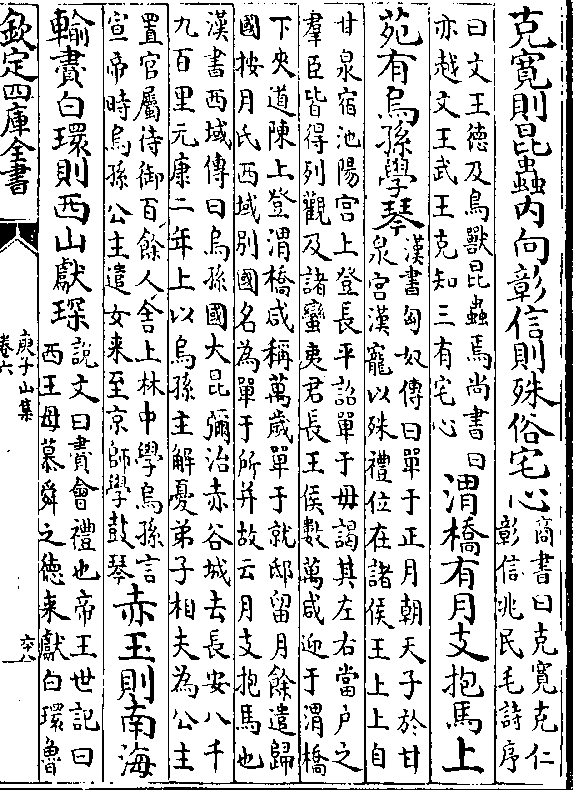 克寛則昆蟲内向彰信則殊俗宅心
商書曰克寛克仁
彰信兆民毛詩序
曰文王德及鳥獸昆蟲焉尚書曰
亦越文王武王克知三有宅心
渭橋有月支抱馬上
苑有烏孫學琴
漢書匈奴傳曰單于正月朝天子於甘
泉宫漢寵以殊禮位在諸侯王上上自
甘泉宿池陽宫上登長平詔單于毋謁其左右當户之
羣臣皆得列觀及諸蠻夷君長王侯數萬咸迎于渭橋
下夾道陳上登渭橋咸稱萬歲單于就邸留月餘遣歸
國按月氏西域别國名為單于所并故云月支抱馬也
漢書西域傳曰烏孫國大昆彌治赤谷城去長安八千
九百里元康二年上以烏孫主解憂弟子相夫為公主
置官屬侍御百餘人舍上林中學烏孫言
宣帝時烏孫公主遣女来至京師學鼓琴
赤玉則南海
輸賮白環則西山獻琛
說文曰賮會禮也帝王世記曰
西王母慕舜之德来獻白環魯
欽定四庫全書
庾子山集
卷六